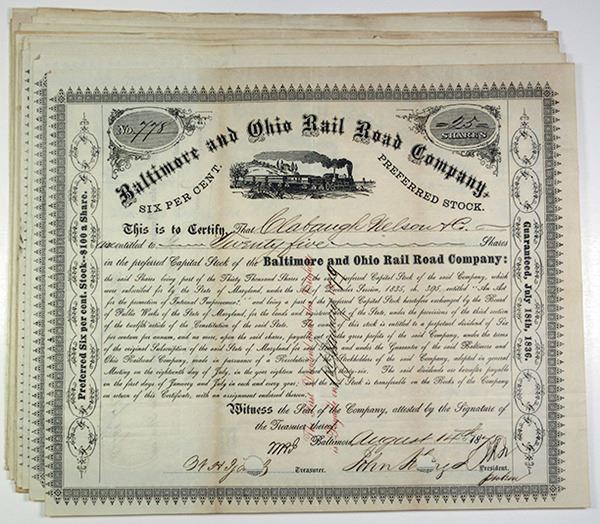 No. 778
25 SHARES
Baltimore and Ohio Rail Road Company.
SIX PER CENT. PREFERRED STOCK.
This is to Certify, That Clabaugh Nelson & Co.
entitled to Twenty five Shares
in the preferred Capital Stock of the Baltimore and Ohio Rail Road Company:
the said Shares being part of the Thirty Thousand Shares of the preferred Capital Stock of the said Company, which
were subscribed for by the State of Maryland, under the Session, 1835, ch. 395, entitled "An Act
for the promotion of Internal Improvement," and being a part of the preferred Capital Stock heretofore exchanged by the Board
of Public Works of the State of Maryland, for the bonds and of the State, under the provisions of the third section
of the twelfth article of the Constitution of the said State. The of this stock is entitled to a perpetual dividend of Six
per centum per annum, and no more, upon the said shares, payable the gross profits of the said Company, under the terms
of the original Subscription of the said State of Maryland and the Guarantee of the said Baltimore and
Ohio Railroad Company, made in pursuance of a Resolution Stockholders of the said Company, adopted in general
Meeting on the eighteenth day of July, in the year eighteen hundred thirty-six. The said dividends are payable
on the first days of January and July in each and every year, and the Stock is transferable on the Books of the Company
on return of this Certificate, with an assignment endorsed thereon.
Witness the Seal of the Company, attested by the Signature of
the Treasurer thereof.
Baltimore, August 14th 18
Treasurer.
John King Jr
President.
Preferred Six per cent. Stock—$100 a Share.
Guaranteed, July 18th, 1836.